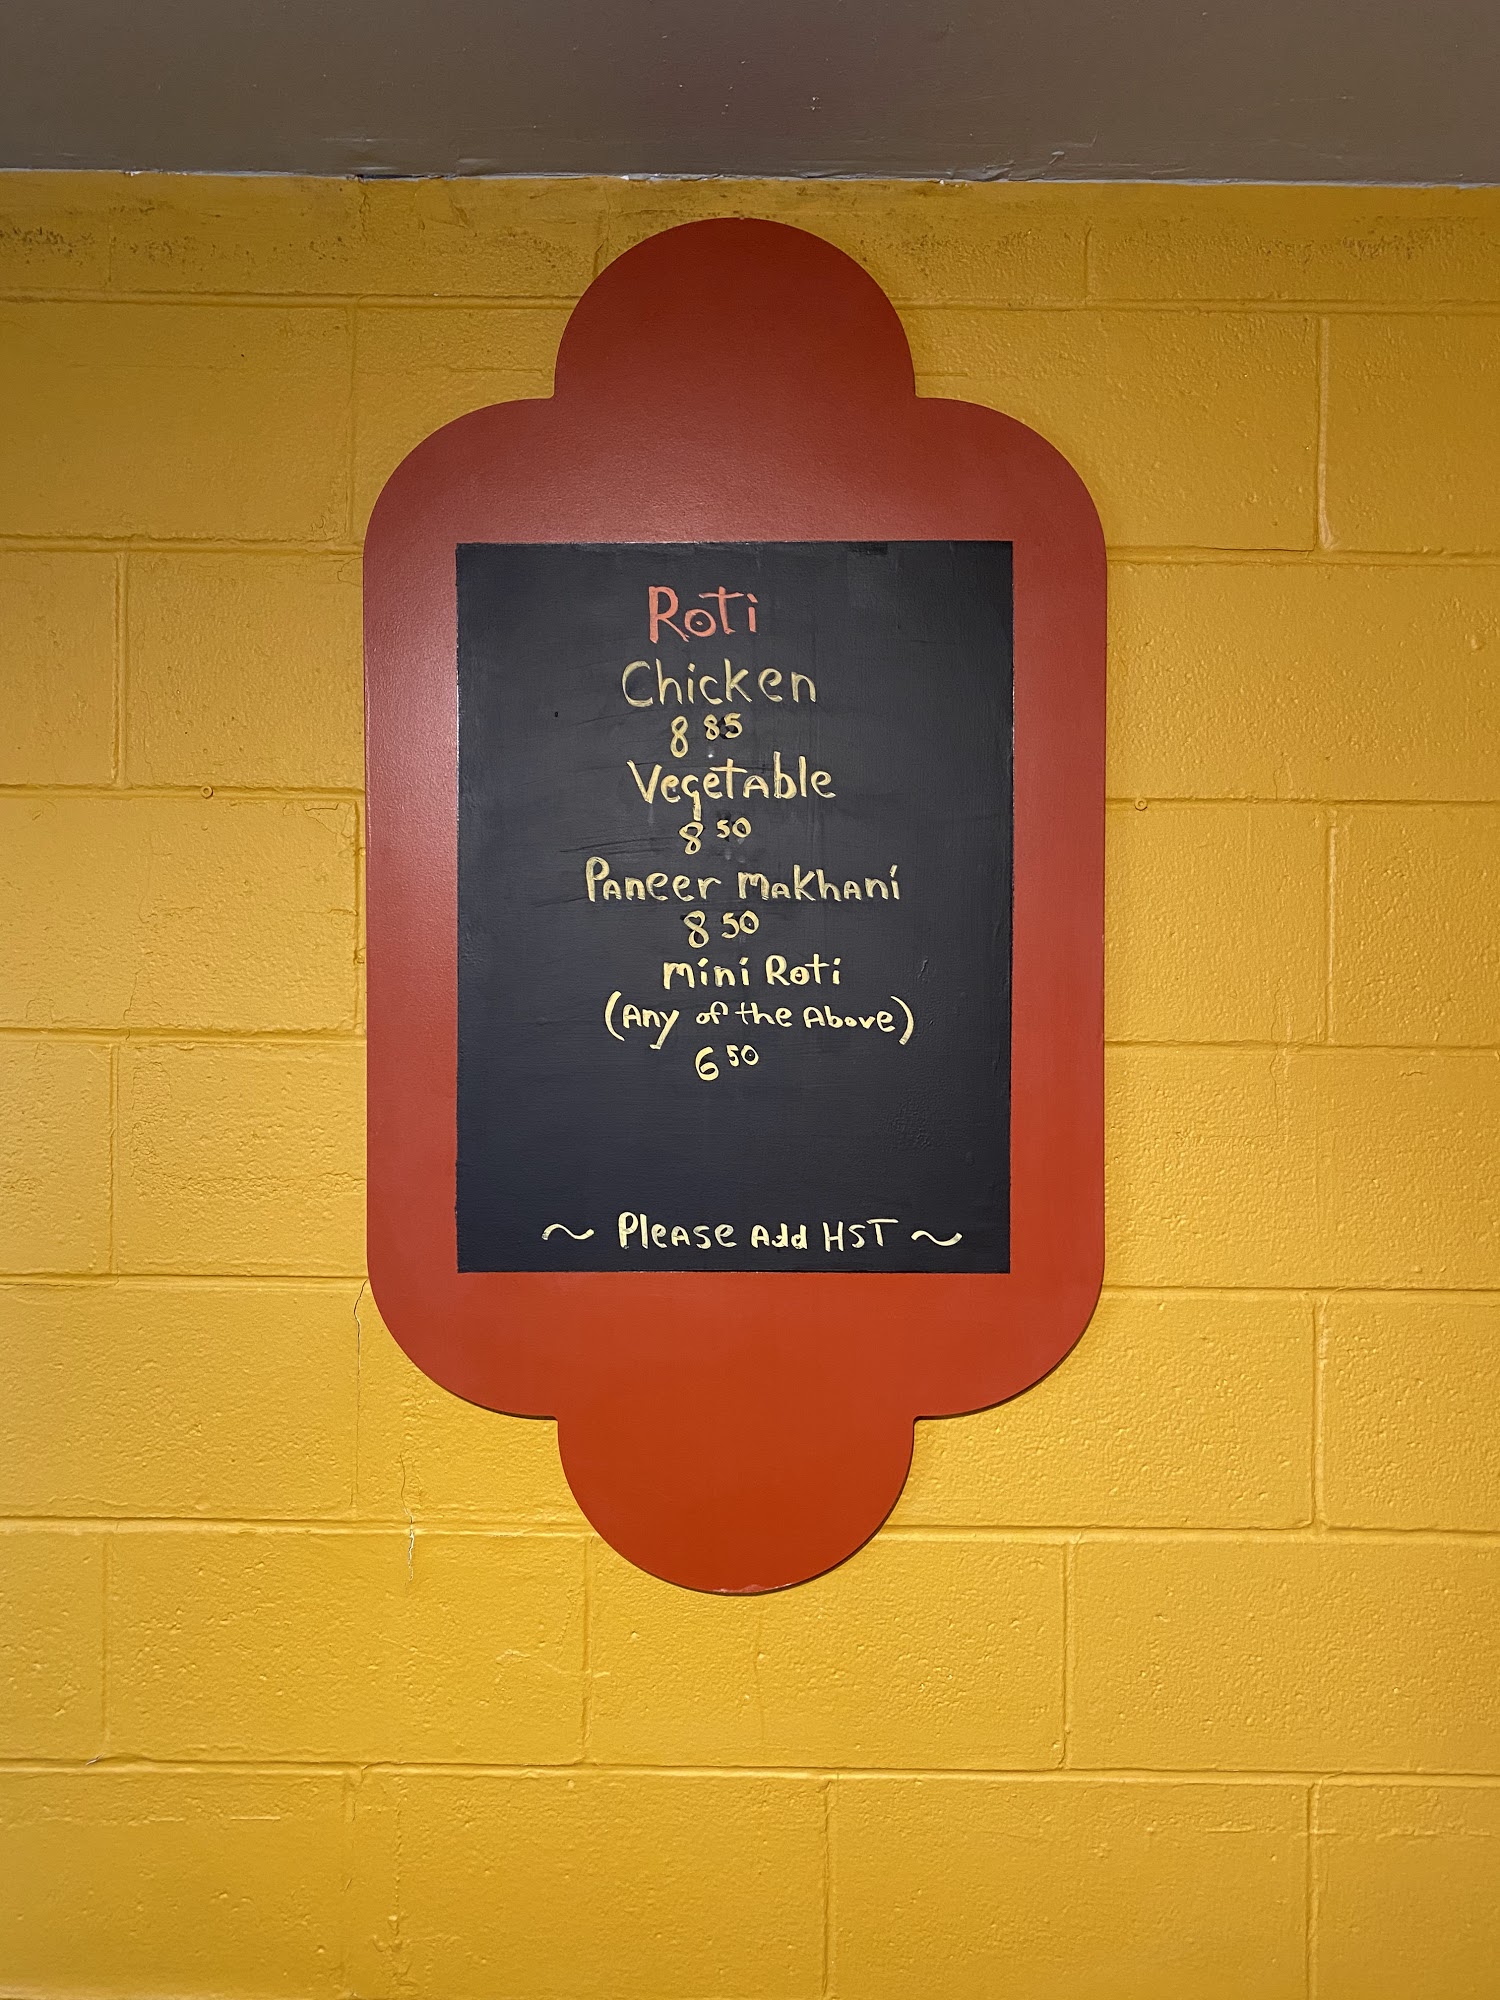 Roti
Chicken
8 85
Vegetable
8 50
Paneer Makhani
8 50
Mini Roti
(Any of the Above)
6 50
~ Please Add HST ~